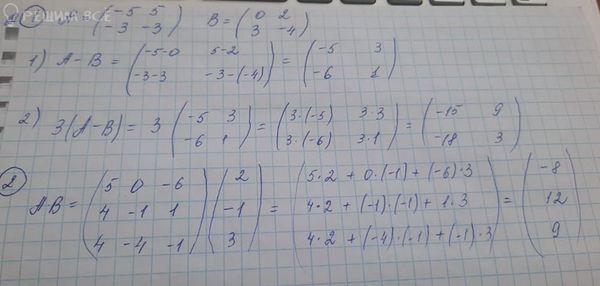 РЕШИМ ВСЕ
① A = (-5 5; -3 -3) B = (0 2; 3 -4)
1) A-B = (-5-0 5-2; -3-3 -3-(-4)) = (-5 3; -6 1)
2) 3(A-B) = 3 (-5 3; -6 1) = (3·(-5) 3·3; 3·(-6) 3·1) = (-15 9; -18 3)
② AB = (5 0 -6; 4 -1 1; 4 -4 -1) (2; -1; 3) = (5·2 + 0·(-1) + (-6)·3; 4·2 + (-1)·(-1) + 1·3; 4·2 + (-4)·(-1) + (-1)·3) = (-8; 12; 9)